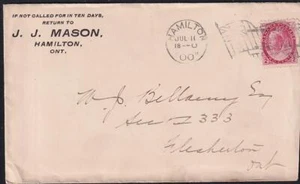 IF NOT CALLED FOR IN TEN DAYS,
RETURN TO
J. J. MASON,
HAMILTON,
ONT.
HAMILTON
JUL 11
00
W. J. Bellamy Esq
Sec 333
Flesherton
Ont